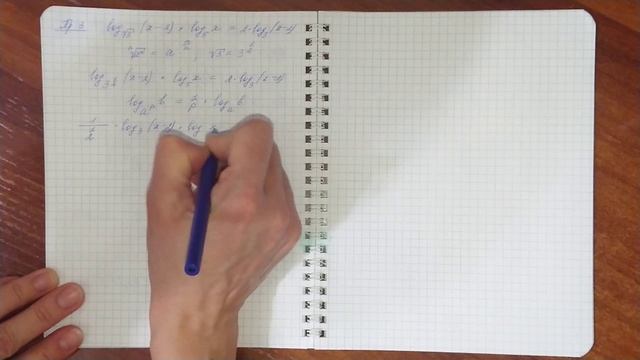 Пр 3 log_√3 (x-2) · log_5 x = 2 · log_3 (x-2)
ⁿ√aᵐ = a^(m/n), √3 = 3^(1/2)
log_3^(1/2) (x-2) · log_5 x = 2 · log_3 (x-2)
log_a^p b = 1/p · log_a b
1/(1/2) · log_3 (x-2) · log